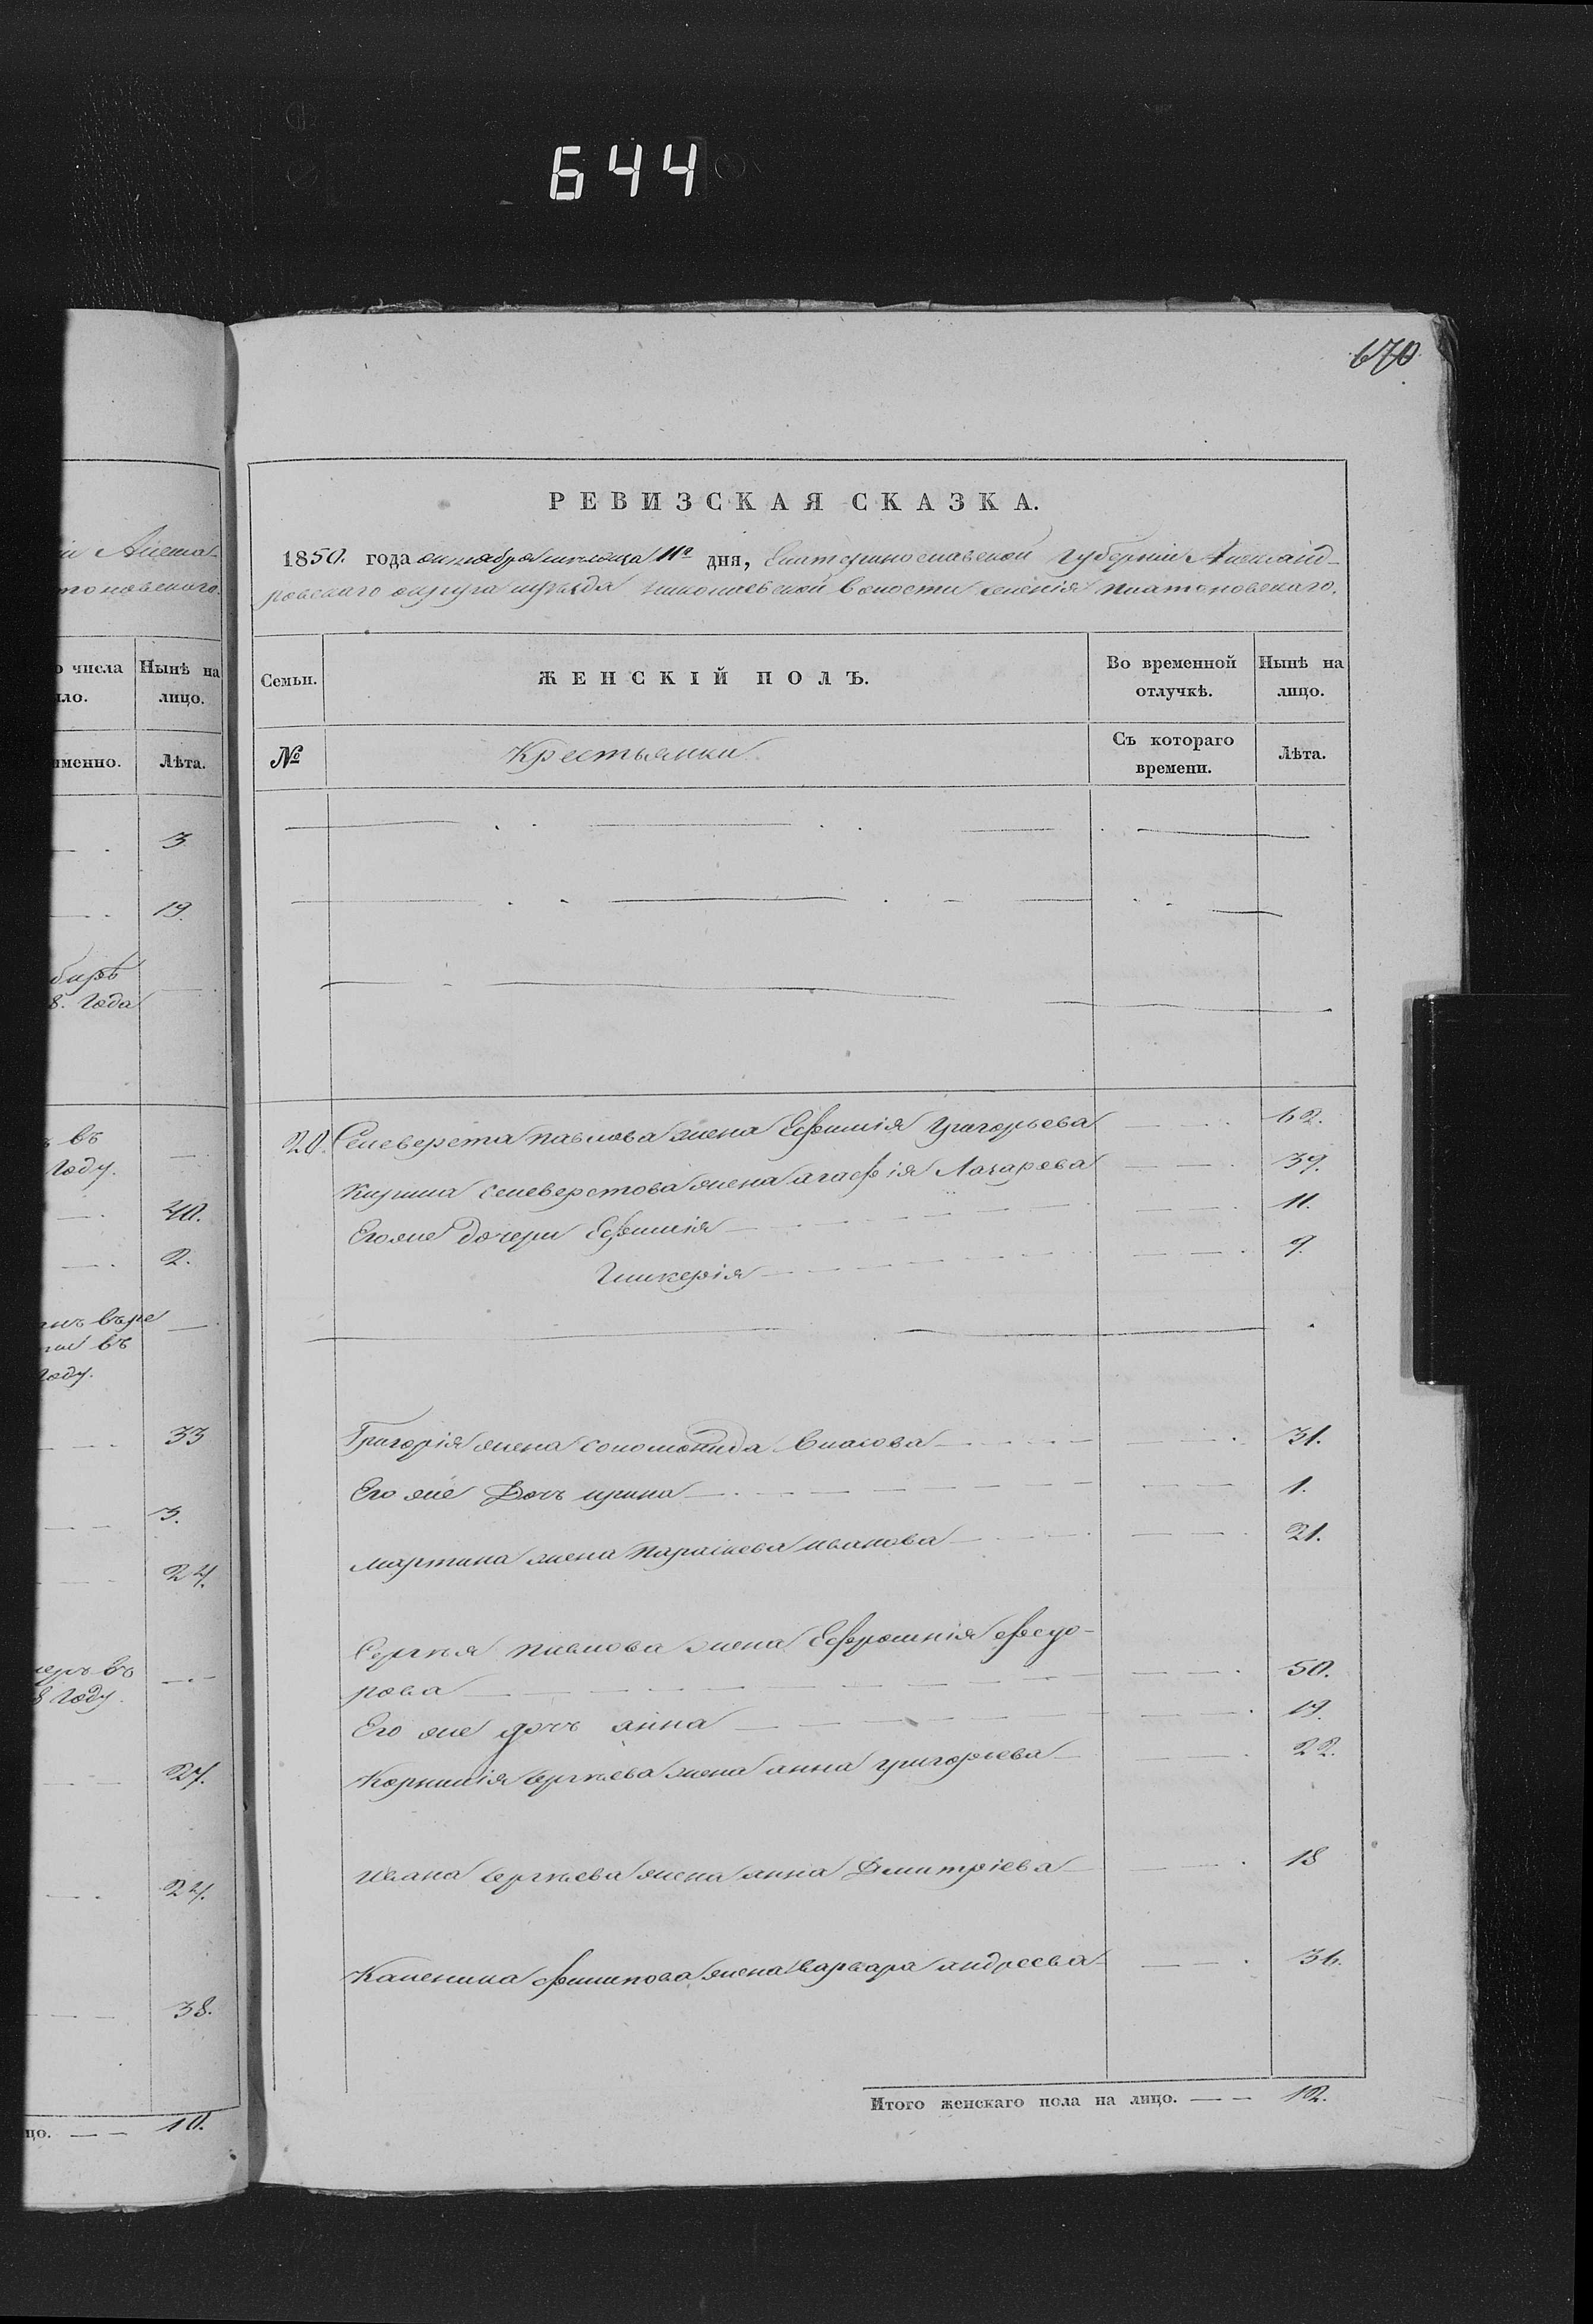 644
670
РЕВИЗСКАЯ СКАЗКА.
1850. года октября месяца 11го дня, Екатеринославской Губерніи Александ-
ровскаго округа иуѣзда николаевской волости селенія платоновскаго.
Семьи.
ЖЕНСКІЙ ПОЛЪ.
Во временной отлучкѣ.
Нынѣ на лицо.
№
Крестьянки
Съ котораго времени.
Лѣта.
20. Селеверста павлова жена Ефимія Григорьева 62.
Кирила селеверстова жена агафія Лазарева 39.
Егоже дочери Ефимія 11.
Гликерія 9.
Григорія жена соломонида власова 31.
Его же Дочь ирина 1.
мартина жена параскева иванова 21.
Сергѣя павлова жена Ефросинія федо-
рова 50.
Его же дочь анна 19.
Корнилія сергѣева жена анна григорьева 22.
Ивана сергѣева жена анна Димитріева 18
Каленика филипова жена варвара андреева 36.
Итого женскаго пола на лицо. 12.
и Алекса-
тоновскаго.
о числа
ло.
Нынѣ на
лицо.
именно.
Лѣта.
3
19.
8. Года
въ
Году.
40.
2.
въ
Году.
33
3.
24.
въ
8 Году.
27.
24.
38.
цо. 10.